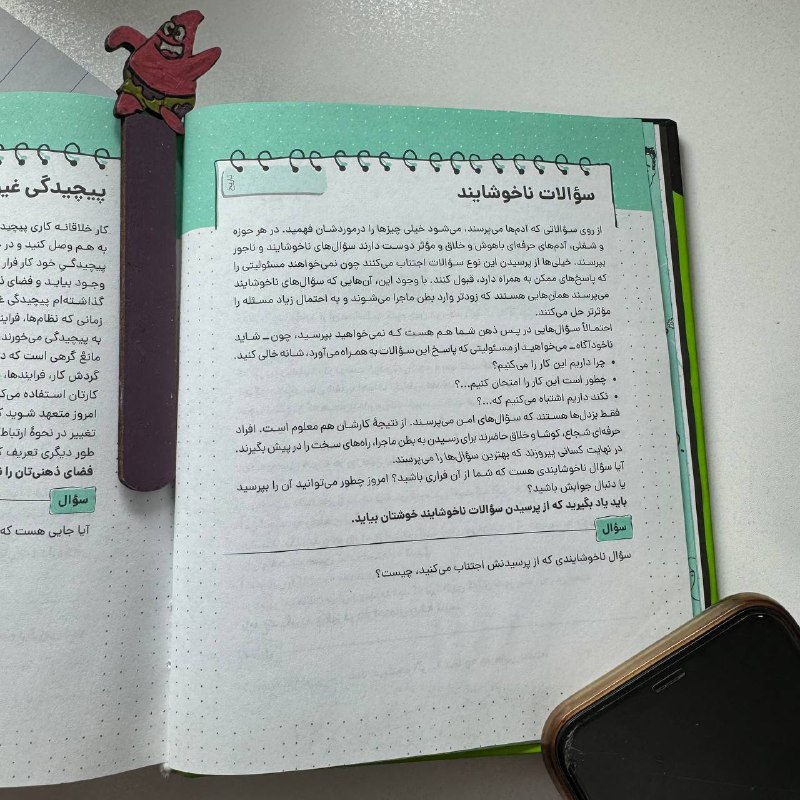 سؤالات ناخوشایند
تاریخ
از روی سؤالاتی که آدم‌ها می‌پرسند، می‌شود خیلی چیزها را درموردشان فهمید. در هر حوزه
و شغلی، آدم‌های حرفه‌ای باهوش و خلاق و مؤثر دوست دارند سؤال‌های ناخوشایند و ناجور
بپرسند. خیلی‌ها از پرسیدن این نوع سؤالات اجتناب می‌کنند چون نمی‌خواهند مسئولیتی را
که پاسخ‌های ممکن به همراه دارد، قبول کنند. با وجود این، آن‌هایی که سؤال‌های ناخوشایند
می‌پرسند همان‌هایی هستند که زودتر وارد بطن ماجرا می‌شوند و به احتمال زیاد مسئله را
مؤثرتر حل می‌کنند.
احتمالاً سؤال‌هایی در پس ذهن شما هم هست که نمی‌خواهید بپرسید، چون ـ شاید
ناخودآگاه ـ می‌خواهید از مسئولیتی که پاسخ این سؤالات به همراه می‌آورد، شانه خالی کنید.
• چرا داریم این کار را می‌کنیم؟
• چطور است این کار را امتحان کنیم...؟
• نکند داریم اشتباه می‌کنیم که...؟
فقط بزدل‌ها هستند که سؤال‌های امن می‌پرسند. از نتیجهٔ کارشان هم معلوم است. افراد
حرفه‌ای شجاع، کوشا و خلاق حاضرند برای رسیدن به بطن ماجرا، راه‌های سخت را در پیش بگیرند.
در نهایت کسانی پیروزند که بهترین سؤال‌ها را می‌پرسند.
آیا سؤال ناخوشایندی هست که شما از آن فراری باشید؟ امروز چطور می‌توانید آن را بپرسید
یا دنبال جوابش باشید؟
باید یاد بگیرید که از پرسیدن سؤالات ناخوشایند خوشتان بیاید.
سؤال
سؤال ناخوشایندی که از پرسیدنش اجتناب می‌کنید، چیست؟
پیچیدگی
کار خلاقانه کاری
به هم وصل کنید و در
پیچیدگی خود کار فرار
وجود بیاید و فضای
گذاشته‌ام پیچیدگی
زمانی که نظام‌ها،
به پیچیدگی می‌خورند
مانعْ گرهی است که
گردش کار، فرایندها،
کارتان استفاده
امروز متعهد شوید
تغییر در نحوهٔ
طور دیگری تعریف
فضای ذهنی‌تان را
سؤال
آیا جایی هست که